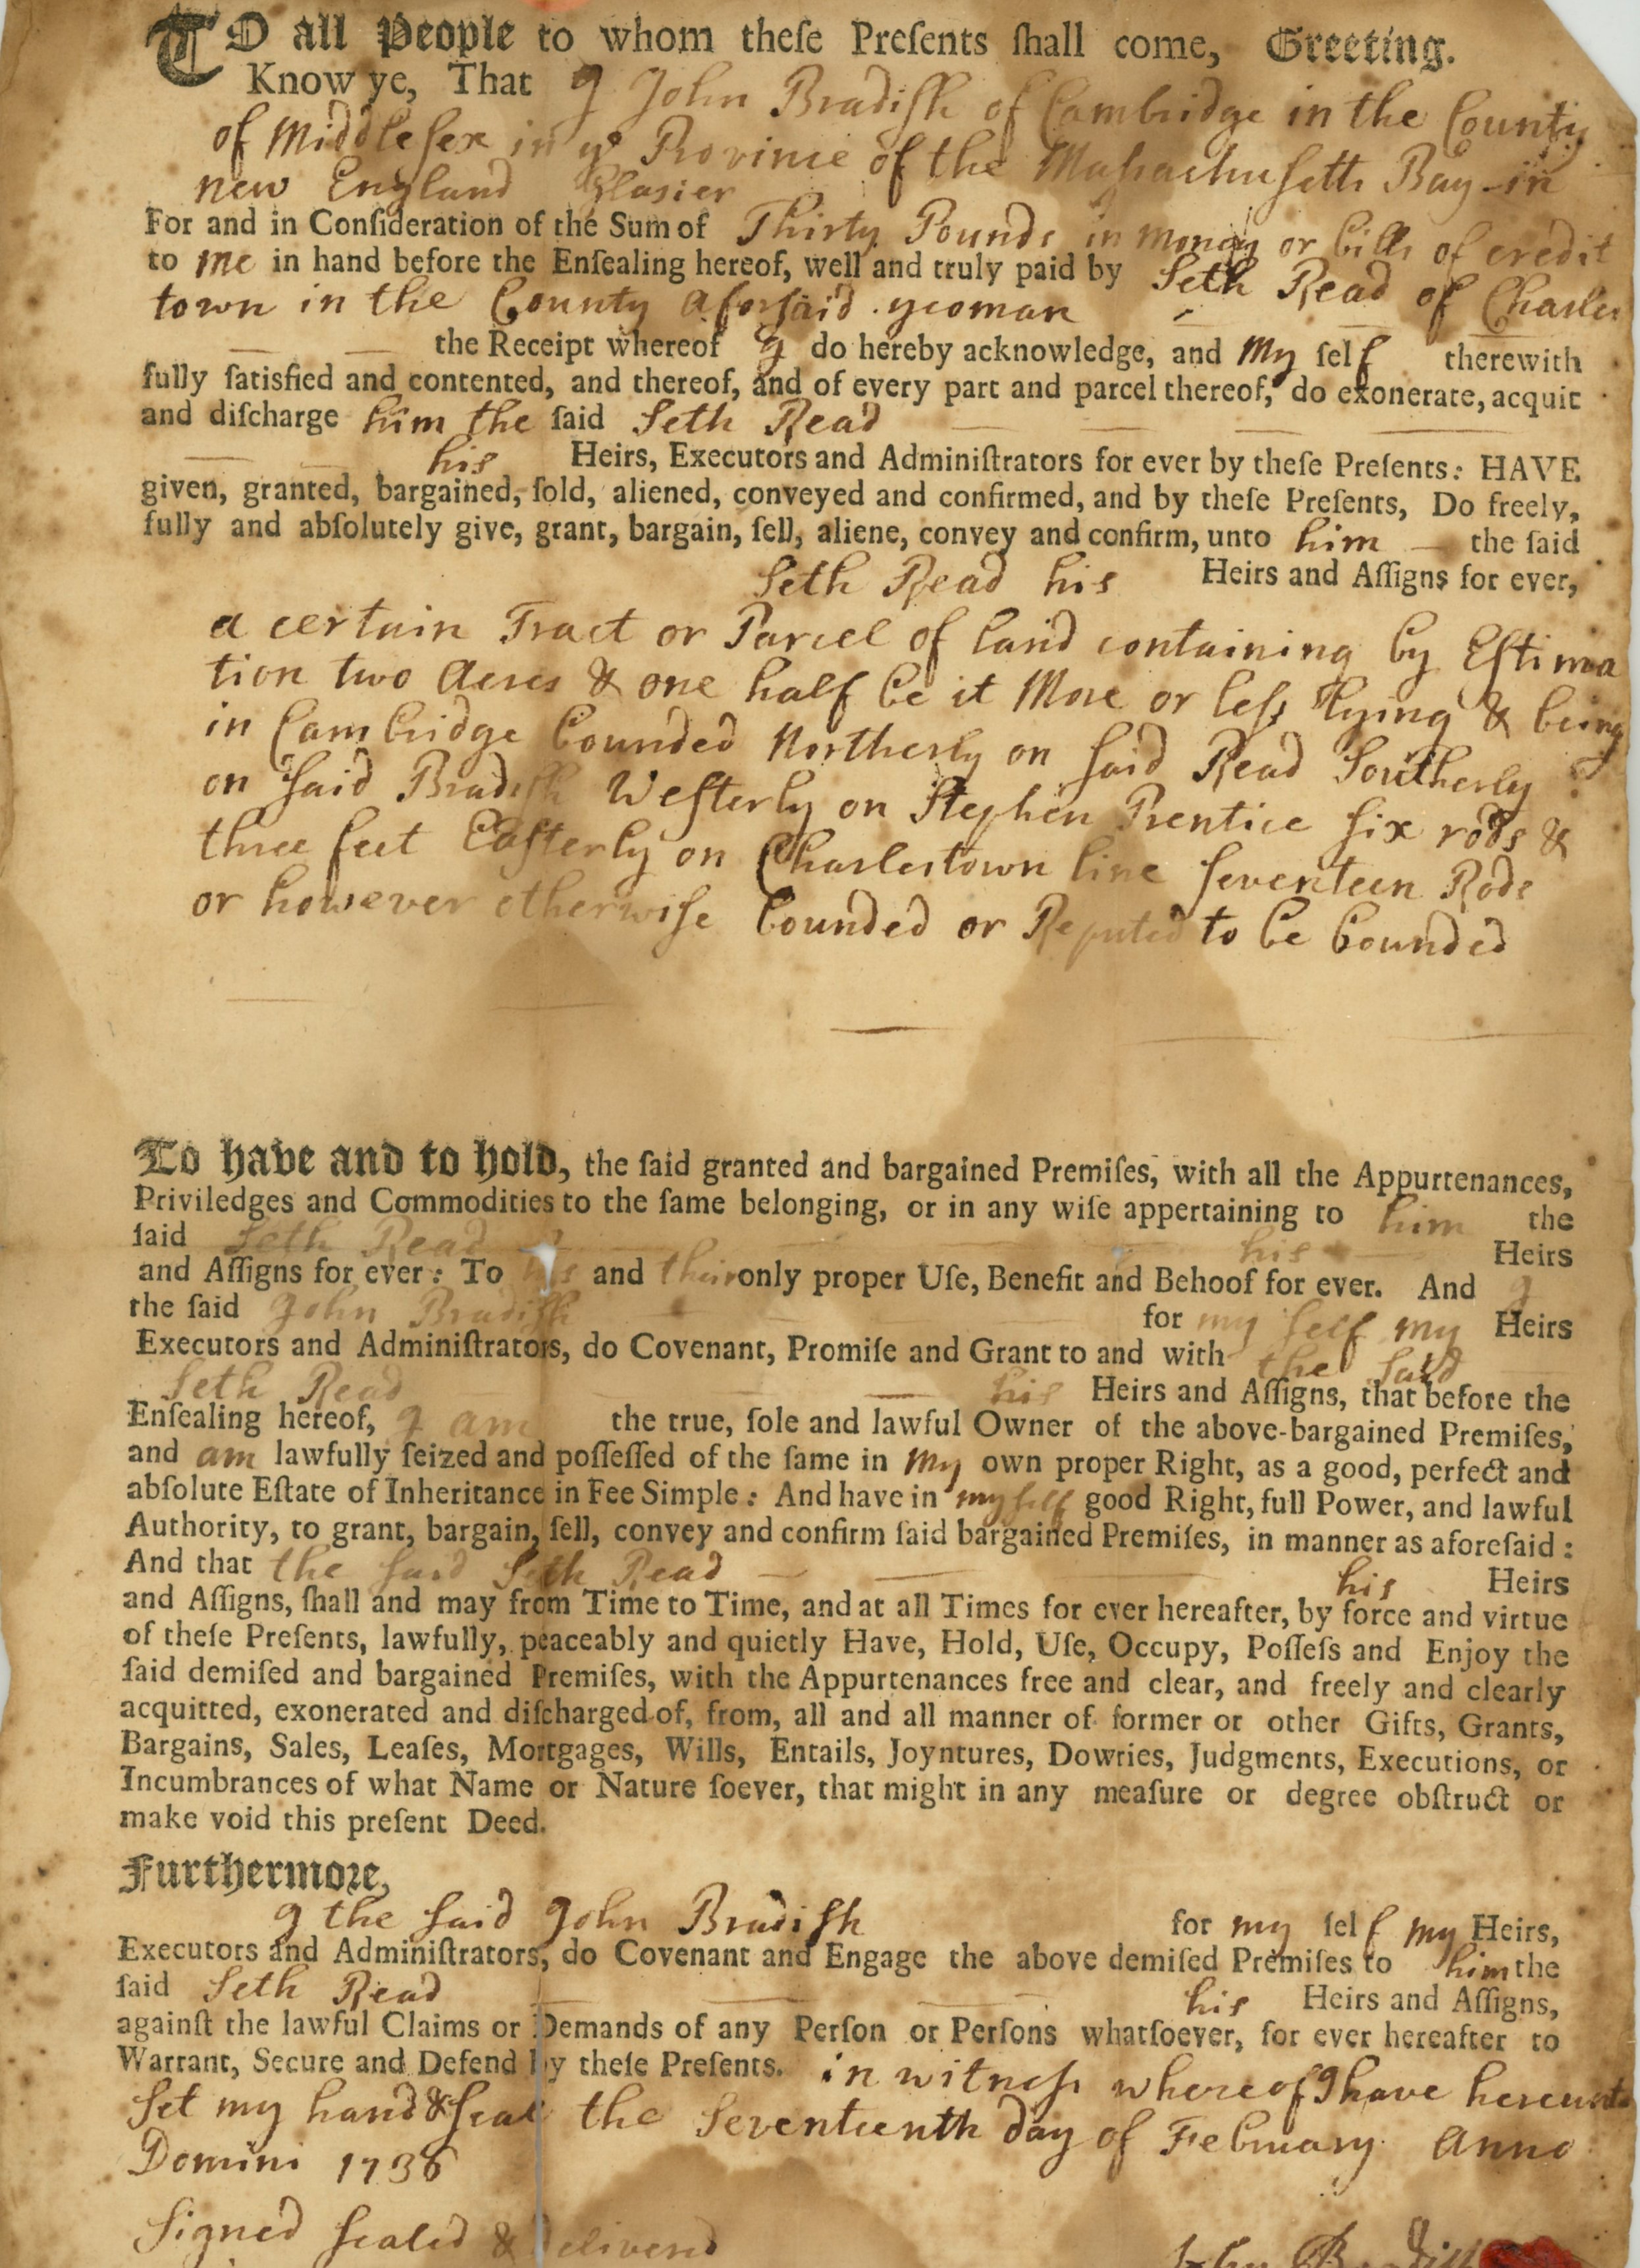 TO all People to whom theſe Preſents ſhall come, Greeting.
Know ye, That I John Bradiſh of Cambridge in the County
of Middleſex in yᵉ Province of the Maſsachuſetts Bay in
new England Glasier
For and in Conſideration of the Sum of Thirty Pounds in money or bills of credit
to me in hand before the Enſealing hereof, well and truly paid by Seth Read of Charles
town in the County aforſaid yeoman
the Receipt whereof I do hereby acknowledge, and my ſelf therewith
fully ſatisfied and contented, and thereof, and of every part and parcel thereof, do exonerate, acquit
and diſcharge him the ſaid Seth Read
his Heirs, Executors and Adminiſtrators for ever by theſe Preſents: HAVE
given, granted, bargained, ſold, aliened, conveyed and confirmed, and by theſe Preſents, Do freely,
fully and abſolutely give, grant, bargain, ſell, aliene, convey and confirm, unto him the ſaid
Seth Read his Heirs and Aſſigns for ever,
a certain Tract or Parcel of land containing by Eſtima
tion two Acres & one half be it More or leſs lying & being
in Cambridge bounded Northerly on ſaid Read Southerly
on ſaid Bradiſh Weſterly on Stephen Prentice ſix rods &
three feet Eaſterly on Charlestown line ſeventeen Rods
or however otherwiſe bounded or Reputed to be bounded
To have and to hold, the ſaid granted and bargained Premiſes, with all the Appurtenances,
Priviledges and Commodities to the ſame belonging, or in any wiſe appertaining to him the
ſaid Seth Read his Heirs
and Aſſigns for ever: To his and their only proper Uſe, Benefit and Behoof for ever. And I
the ſaid John Bradiſh for my ſelf my Heirs
Executors and Adminiſtrators, do Covenant, Promiſe and Grant to and with the ſaid
Seth Read his Heirs and Aſſigns, that before the
Enſealing hereof, I am the true, ſole and lawful Owner of the above-bargained Premiſes,
and am lawfully ſeized and poſſeſſed of the ſame in my own proper Right, as a good, perfect and
abſolute Eſtate of Inheritance in Fee Simple: And have in my ſelf good Right, full Power, and lawful
Authority, to grant, bargain, ſell, convey and confirm ſaid bargained Premiſes, in manner as aforeſaid:
And that the ſaid Seth Read his Heirs
and Aſſigns, ſhall and may from Time to Time, and at all Times for ever hereafter, by force and virtue
of theſe Preſents, lawfully, peaceably and quietly Have, Hold, Uſe, Occupy, Poſſeſs and Enjoy the
ſaid demiſed and bargained Premiſes, with the Appurtenances free and clear, and freely and clearly
acquitted, exonerated and diſcharged of, from, all and all manner of former or other Gifts, Grants,
Bargains, Sales, Leaſes, Mortgages, Wills, Entails, Joyntures, Dowries, Judgments, Executions, or
Incumbrances of what Name or Nature ſoever, that might in any meaſure or degree obſtruct or
make void this preſent Deed.
Furthermore,
I the ſaid John Bradiſh for my ſelf my Heirs,
Executors and Adminiſtrators, do Covenant and Engage the above demiſed Premiſes to him the
ſaid Seth Read his Heirs and Aſſigns,
againſt the lawful Claims or Demands of any Perſon or Perſons whatſoever, for ever hereafter to
Warrant, Secure and Defend by theſe Preſents. in witneſs whereof I have hereunto
ſet my hand & ſeal the Seventeenth day of February Anno
Domini 1738
Signed ſealed & delivered
John Bradiſh